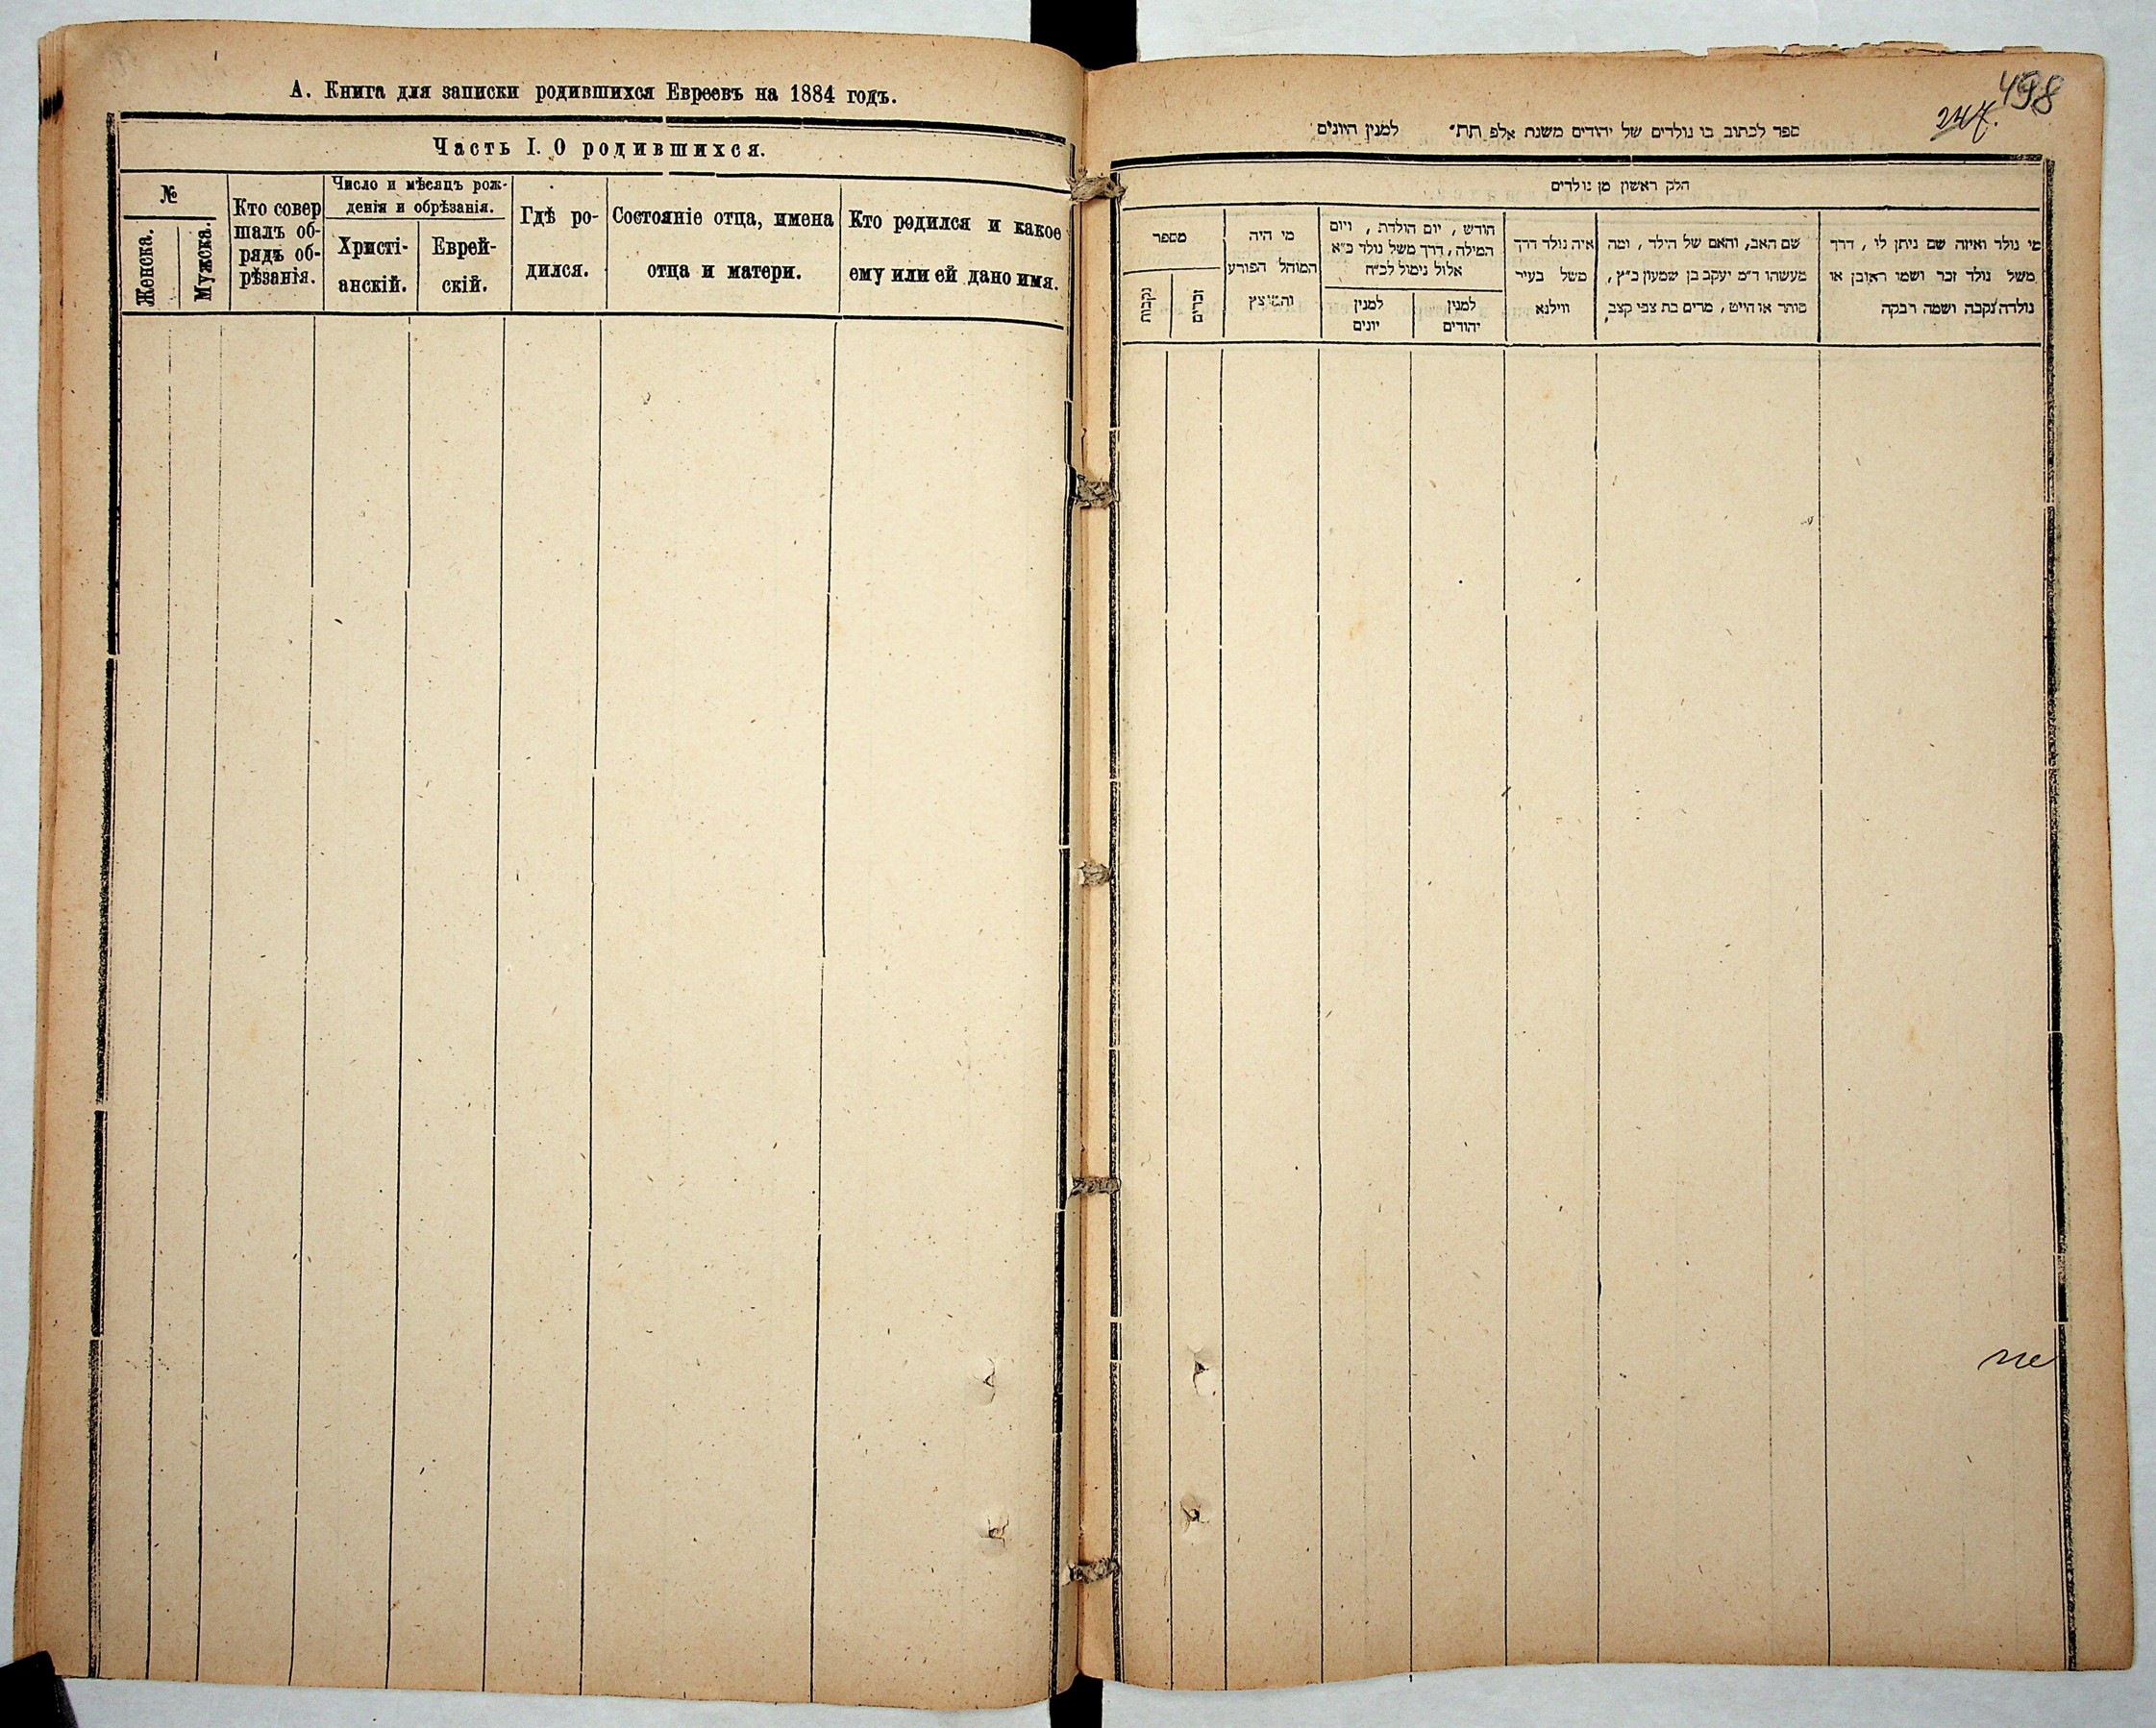 А. Книга для записки родившихся Евреевъ на 1884 годъ.
Часть I. О родившихся.
№
Женска.
Мужска.
Кто совер
шалъ об-
рядъ об-
рѣзанія.
Число и мѣсяцъ рож-
денія и обрѣзанія.
Христі-
анскій.
Еврей-
скій.
Гдѣ ро-
дился.
Состояніе отца, имена
отца и матери.
Кто родился и какое
ему или ей дано имя.
498
247.
ספר לכתוב בו נולדים של יהודים משנת אלפ תת״ למנין היונים
חלק ראשון מן נולדים
מי נולד ואיזה שם ניתן לו, דרך
משל נולד זכר ושמו ראובן או
נולדה נקבה ושמה רבקה
שם האב, והאם של הילד, ומה
מעשהו ד״מ יעקב בן שמעון כ״ץ,
סוחר או חייט, מרים בת צבי קצב,
איה נולד דרך
משל בעיר
ווילנא
חודש, יום הולדת, ויום
המילה, דרך משל נולד כ״א
אלול נימול לכ״ח
למנין
יהודים
למנין
יונים
מי היה
המוהל הפורע
והמוצץ
מספר
זכרים
נקבות